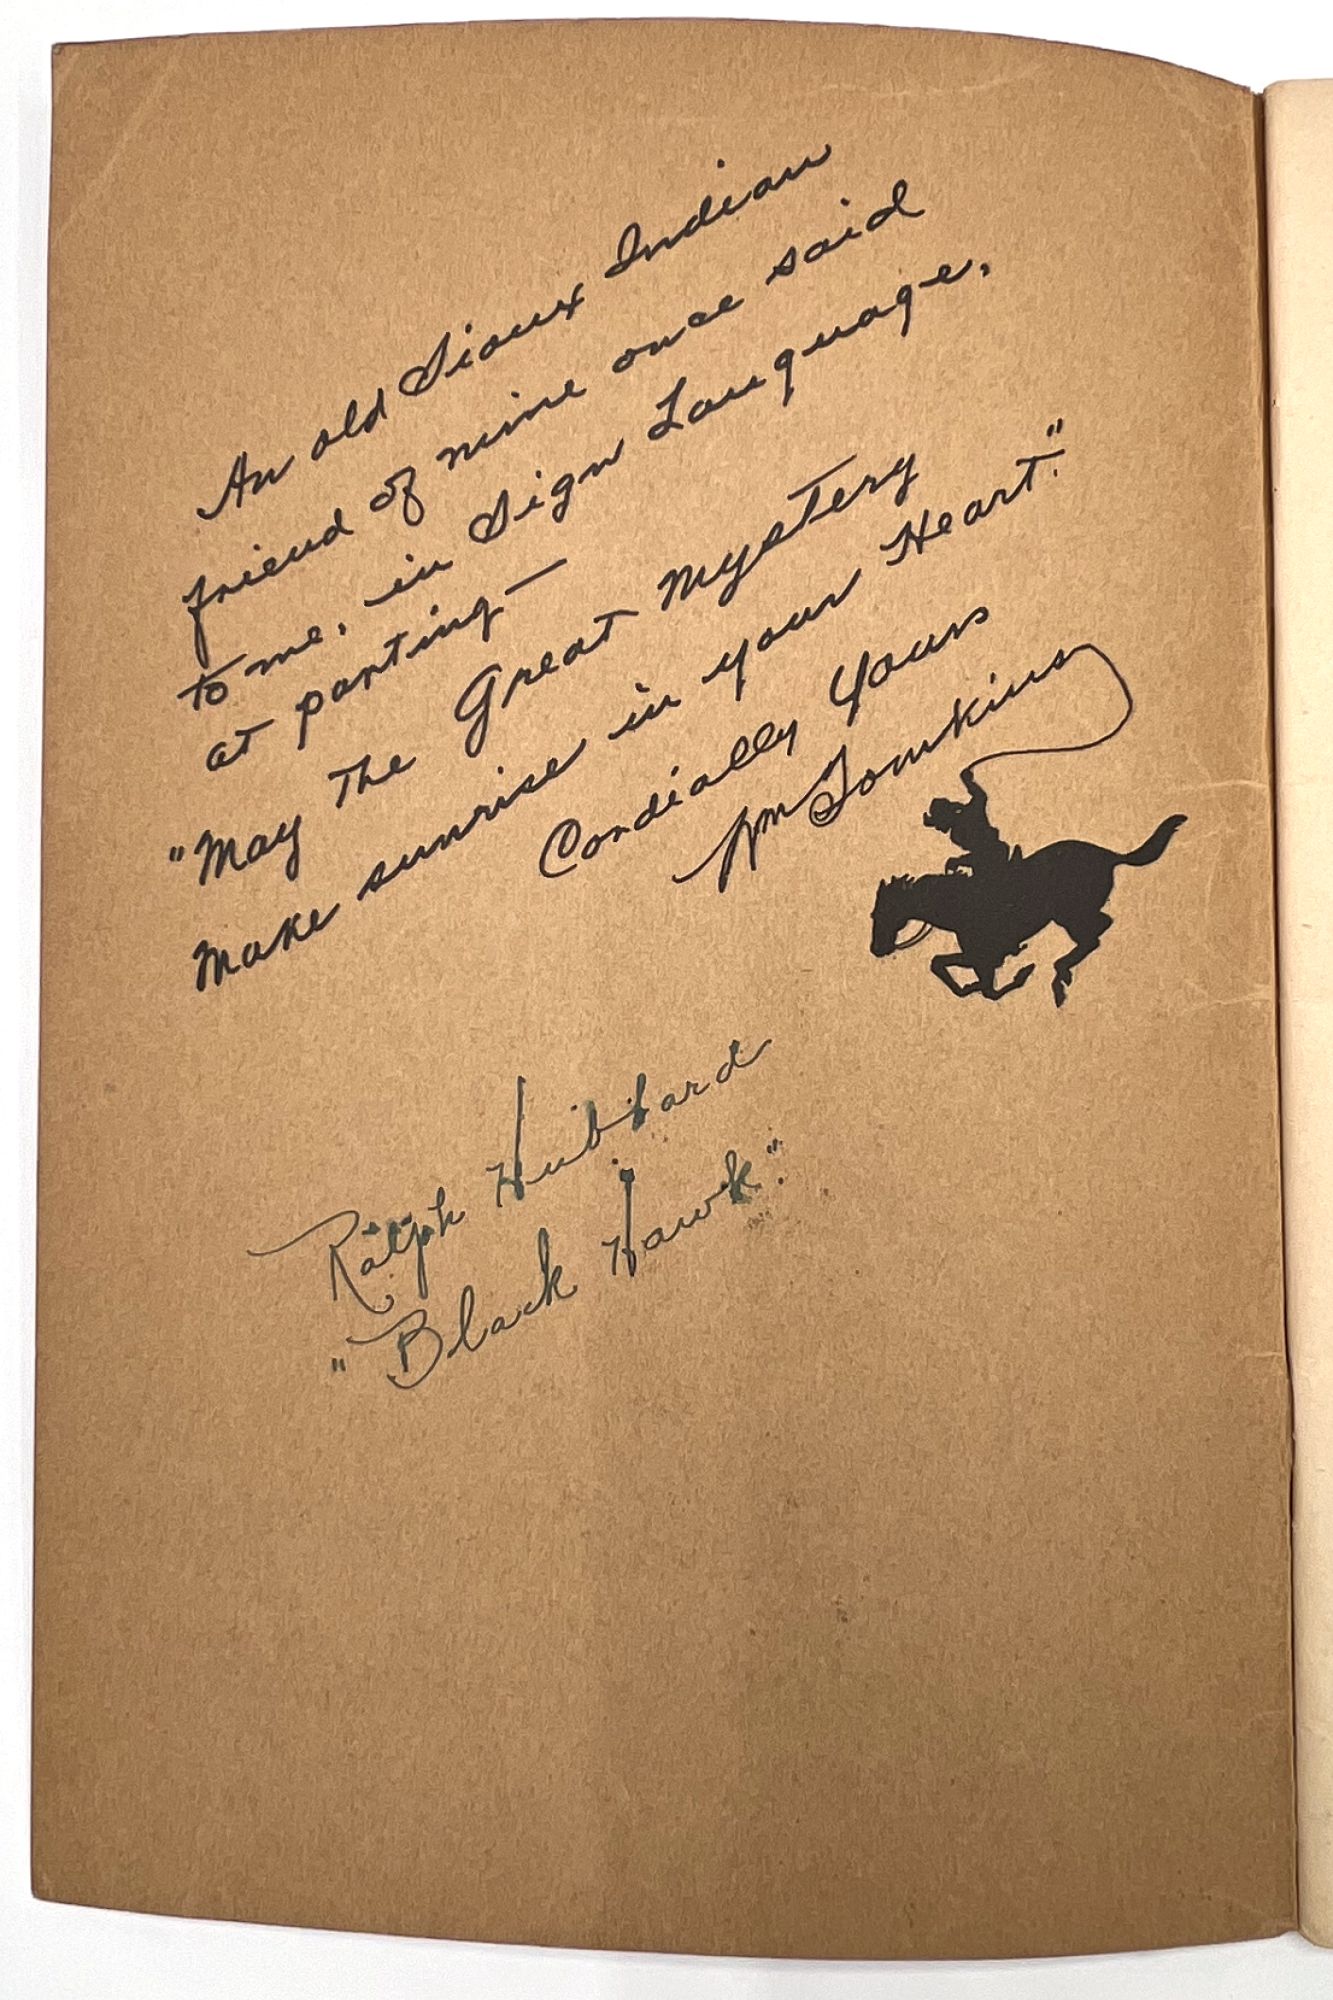 An old Sioux Indian
friend of mine once said
to me, in Sign Language,
at parting—
"May The Great Mystery
make sunrise in your Heart."
Cordially Yours
Wm Tomkins
Ralph Hubbard
"Black Hawk".